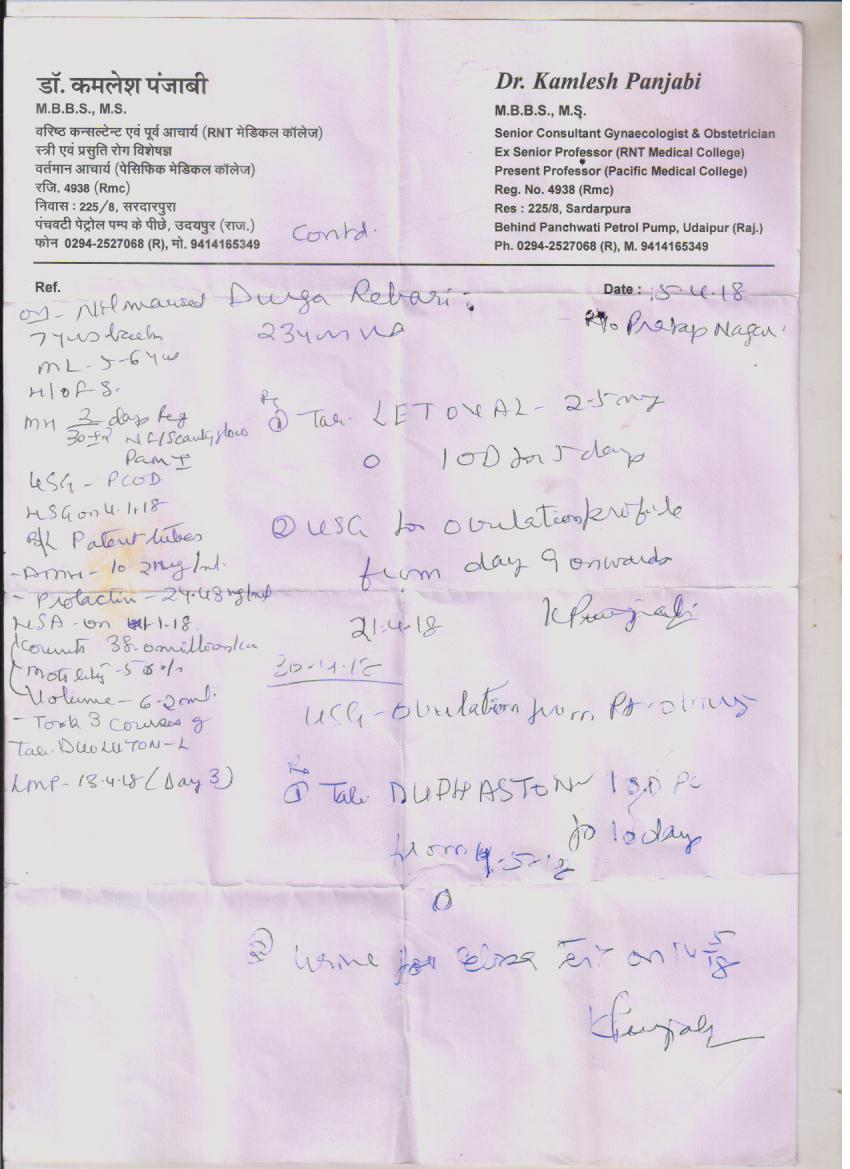 डॉ. कमलेश पंजाबी
M.B.B.S., M.S.
वरिष्ठ कन्सल्टेन्ट एवं पूर्व आचार्य (RNT मेडिकल कॉलेज)
स्त्री एवं प्रसुति रोग विशेषज्ञ
वर्तमान आचार्य (पेसिफिक मेडिकल कॉलेज)
रजि. 4938 (Rmc)
निवास : 225/8, सरदारपुरा
पंचवटी पेट्रोल पम्प के पीछे, उदयपुर (राज.)
फोन 0294-2527068 (R), मो. 9414165349
Dr. Kamlesh Panjabi
M.B.B.S., M.S.
Senior Consultant Gynaecologist & Obstetrician
Ex Senior Professor (RNT Medical College)
Present Professor (Pacific Medical College)
Reg. No. 4938 (Rmc)
Res : 225/8, Sardarpura
Behind Panchwati Petrol Pump, Udaipur (Raj.)
Ph. 0294-2527068 (R), M. 9414165349
Contd.
Ref.
Date : 15-4-18
Durga Rebari
R/o Pratap Nagar
married
7 yrs back
ML - 5-6 yrs
H/O F.S.
MH 3 days Reg
30±2 /Scanty flow
Pain I
USG - PCOD
HSG on 4.1.18
B/L Patent tubes
- AMH - 10.21 ng/ml.
- Prolactin - 24.43 ng/ml
HSA - on 1.18
Counts 38.0 million/
Motility - 50%
Volume - 6.2 ml.
- Took 3 courses of
Tab. DUOLUTON-L
LMP - 13.4.18 (Day 3)
Rx
① Tab. - 2.5 mg
1 OD for 5 days
② USG for ovulation profile
from day 9 onwards
K Panjabi
21.4.18
30.4.18
USG - Ovulation from Rt. ovary
Rx
① Tab. DUPHASTON
for 10 days
from 4-5-18
② Urine for Test on 14/5/18
K Panjabi